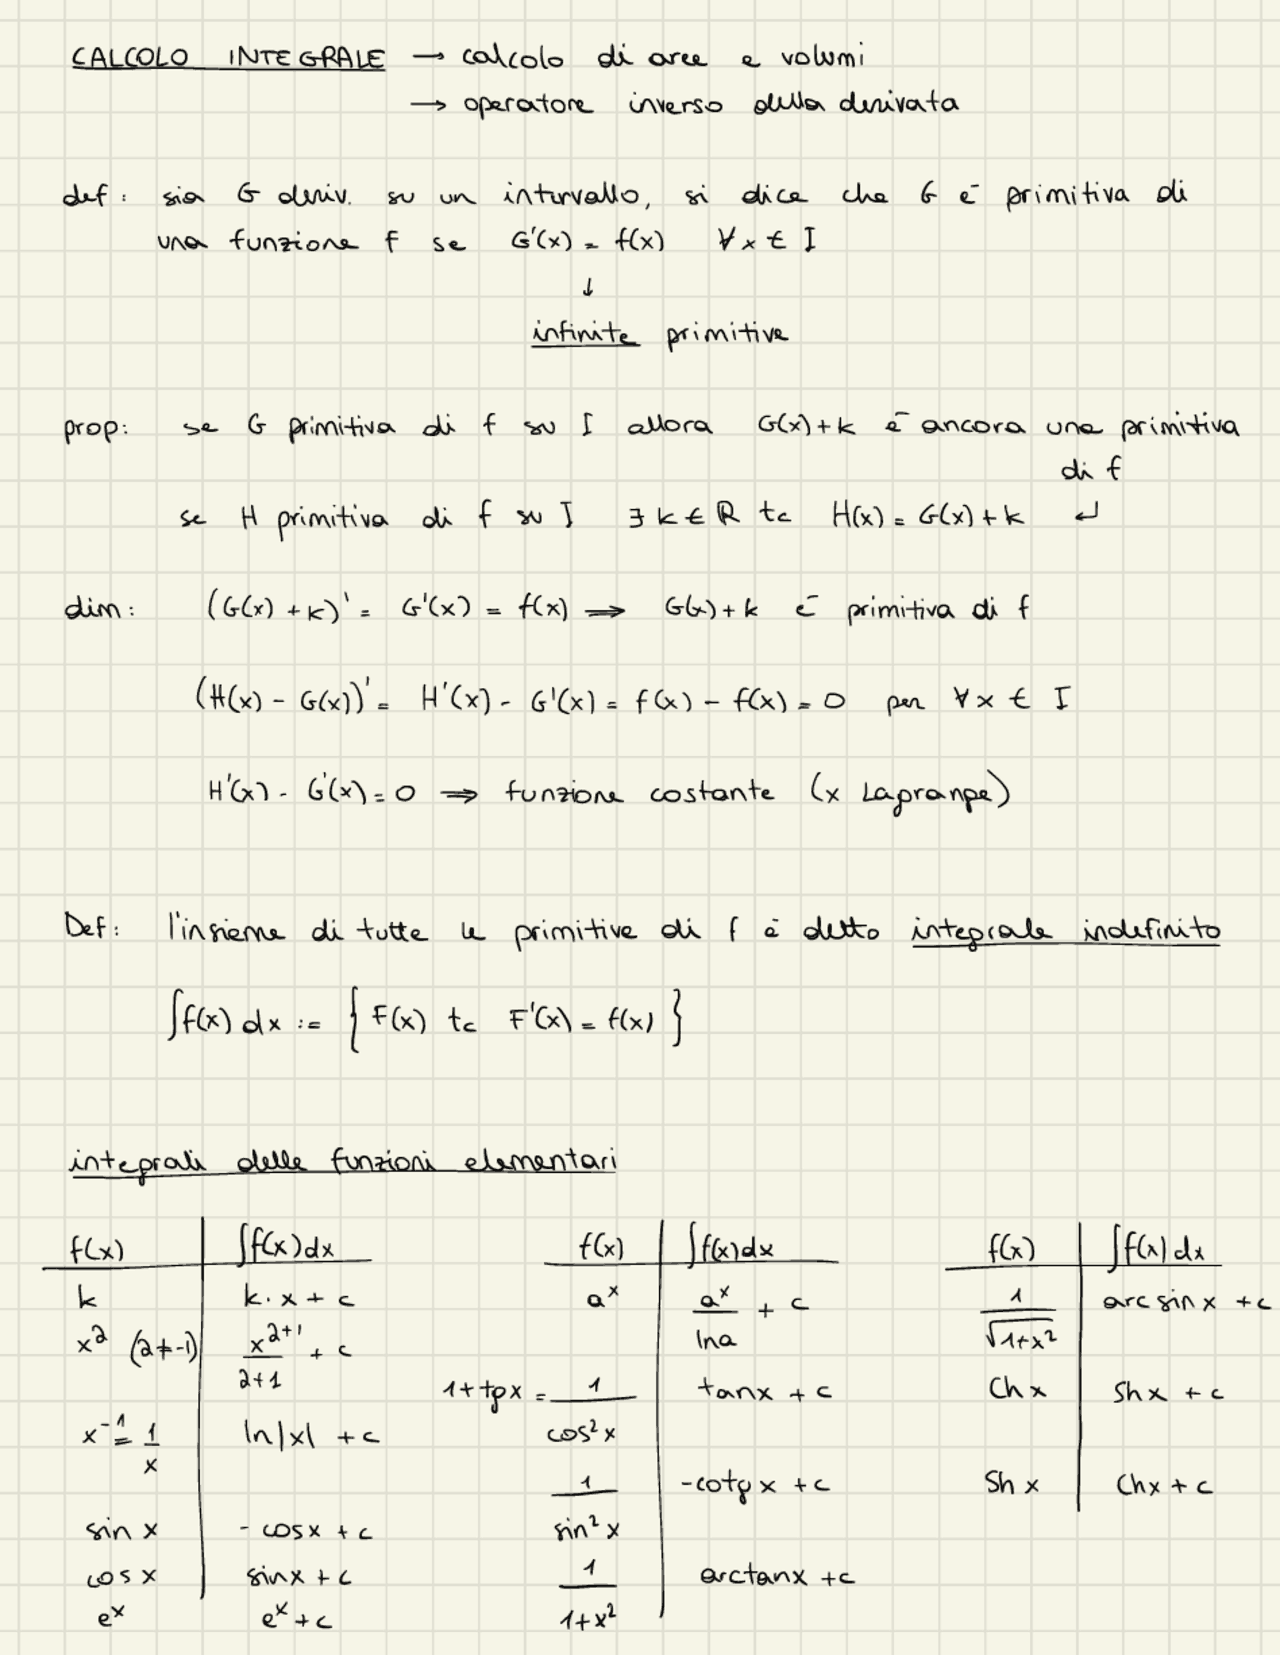 CALCOLO INTEGRALE → calcolo di aree e volumi
→ operatore inverso della derivata
def: sia G deriv. su un intervallo, si dice che G è primitiva di
una funzione f se G'(x) = f(x) ∀x ∈ I
↓
infinite primitive
prop: se G primitiva di f su I allora G(x)+k è ancora una primitiva
di f
se H primitiva di f su I ∃ k ∈ R tc H(x) = G(x)+k ↵
dim: (G(x)+k)' = G'(x) = f(x) ⟹ G(x)+k è primitiva di f
(H(x) - G(x))' = H'(x) - G'(x) = f(x) - f(x) = 0 per ∀x ∈ I
H'(x) - G'(x) = 0 ⟹ funzione costante (x Lagrange)
Def: l'insieme di tutte le primitive di f è detto integrale indefinito
∫f(x) dx := { F(x) tc F'(x) = f(x) }
integrali delle funzioni elementari
f(x) ∫f(x)dx
k k·x + c
x^2 (2≠-1) x^(2+1)/(2+1) + c
x^-1 = 1/x ln|x| + c
sin x - cosx + c
cos x sinx + c
e^x e^x + c
f(x) ∫f(x)dx
a^x a^x/lna + c
1+tgx = 1/cos²x tanx + c
1/sin²x -cotgx + c
1/1+x² arctanx + c
f(x) ∫f(x)dx
1/√1+x² arcsinx + c
Chx Shx + c
Shx Chx + c